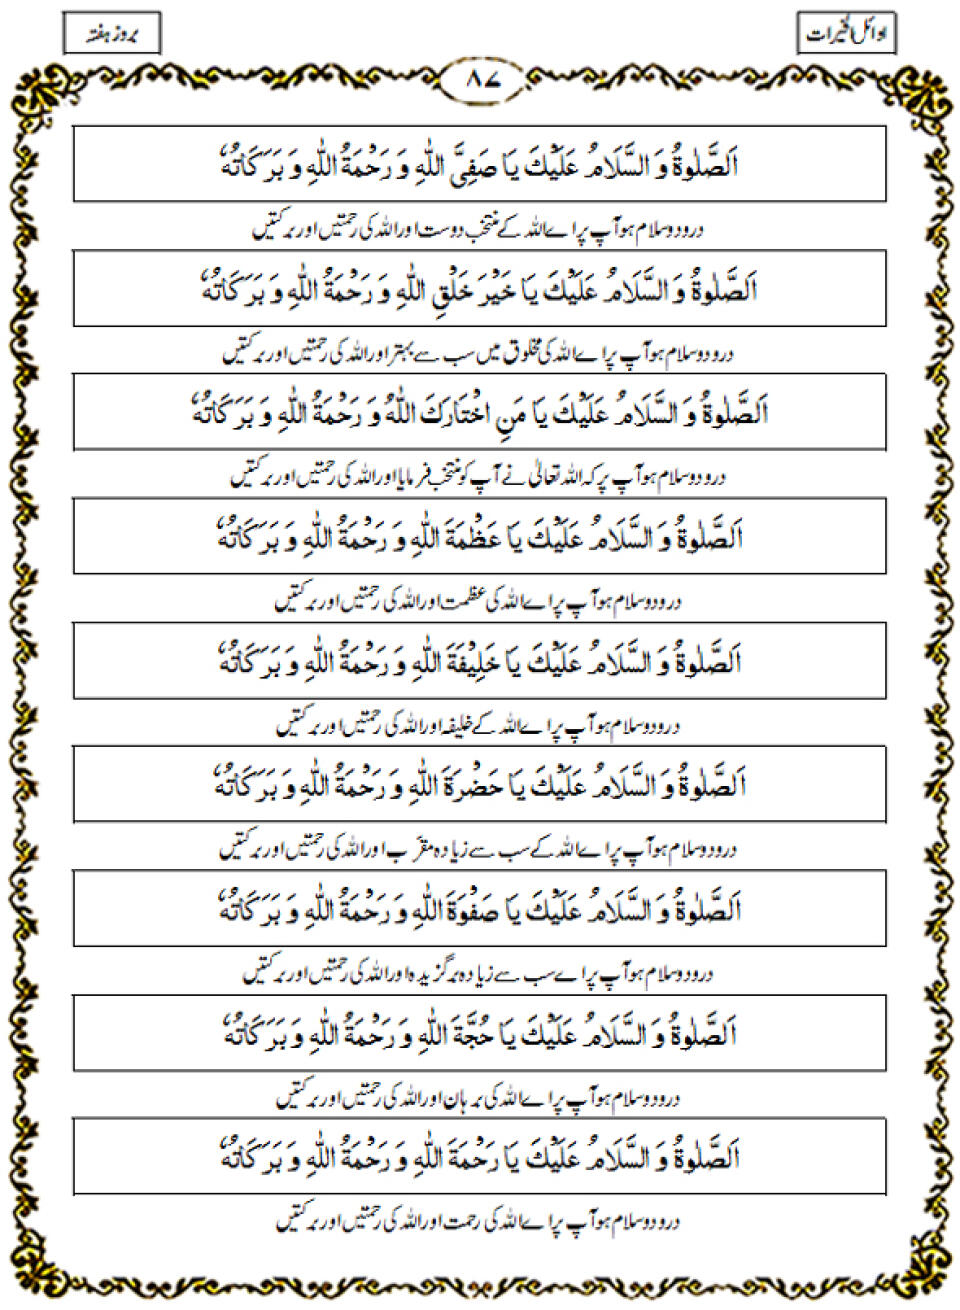 اوائل الخیرات
بروز ہفتہ
۸۷
اَلصَّلٰوةُ وَ السَّلَامُ عَلَیْكَ یَا صَفِیَّ اللّٰهِ وَ رَحْمَةُ اللّٰهِ وَ بَرَكَاتُهٗ
درود و سلام ہو آپ پر اے اللہ کے منتخب دوست اور اللہ کی رحمتیں اور برکتیں
اَلصَّلٰوةُ وَ السَّلَامُ عَلَیْكَ یَا خَیْرَ خَلْقِ اللّٰهِ وَ رَحْمَةُ اللّٰهِ وَ بَرَكَاتُهٗ
درود و سلام ہو آپ پر اے اللہ کی مخلوق میں سب سے بہتر اور اللہ کی رحمتیں اور برکتیں
اَلصَّلٰوةُ وَ السَّلَامُ عَلَیْكَ یَا مَنِ اخْتَارَكَ اللّٰهُ وَ رَحْمَةُ اللّٰهِ وَ بَرَكَاتُهٗ
درود و سلام ہو آپ پر کہ اللہ تعالیٰ نے آپ کو منتخب فرمایا اور اللہ کی رحمتیں اور برکتیں
اَلصَّلٰوةُ وَ السَّلَامُ عَلَیْكَ یَا عَظْمَةَ اللّٰهِ وَ رَحْمَةُ اللّٰهِ وَ بَرَكَاتُهٗ
درود و سلام ہو آپ پر اے اللہ کی عظمت اور اللہ کی رحمتیں اور برکتیں
اَلصَّلٰوةُ وَ السَّلَامُ عَلَیْكَ یَا خَلِیْفَةَ اللّٰهِ وَ رَحْمَةُ اللّٰهِ وَ بَرَكَاتُهٗ
درود و سلام ہو آپ پر اے اللہ کے خلیفہ اور اللہ کی رحمتیں اور برکتیں
اَلصَّلٰوةُ وَ السَّلَامُ عَلَیْكَ یَا حَضْرَةَ اللّٰهِ وَ رَحْمَةُ اللّٰهِ وَ بَرَكَاتُهٗ
درود و سلام ہو آپ پر اے اللہ کے سب سے زیادہ مقرّب اور اللہ کی رحمتیں اور برکتیں
اَلصَّلٰوةُ وَ السَّلَامُ عَلَیْكَ یَا صَفْوَةَ اللّٰهِ وَ رَحْمَةُ اللّٰهِ وَ بَرَكَاتُهٗ
درود و سلام ہو آپ پر اے سب سے زیادہ برگزیدہ اور اللہ کی رحمتیں اور برکتیں
اَلصَّلٰوةُ وَ السَّلَامُ عَلَیْكَ یَا حُجَّةَ اللّٰهِ وَ رَحْمَةُ اللّٰهِ وَ بَرَكَاتُهٗ
درود و سلام ہو آپ پر اے اللہ کی برہان اور اللہ کی رحمتیں اور برکتیں
اَلصَّلٰوةُ وَ السَّلَامُ عَلَیْكَ یَا رَحْمَةَ اللّٰهِ وَ رَحْمَةُ اللّٰهِ وَ بَرَكَاتُهٗ
درود و سلام ہو آپ پر اے اللہ کی رحمت اور اللہ کی رحمتیں اور برکتیں